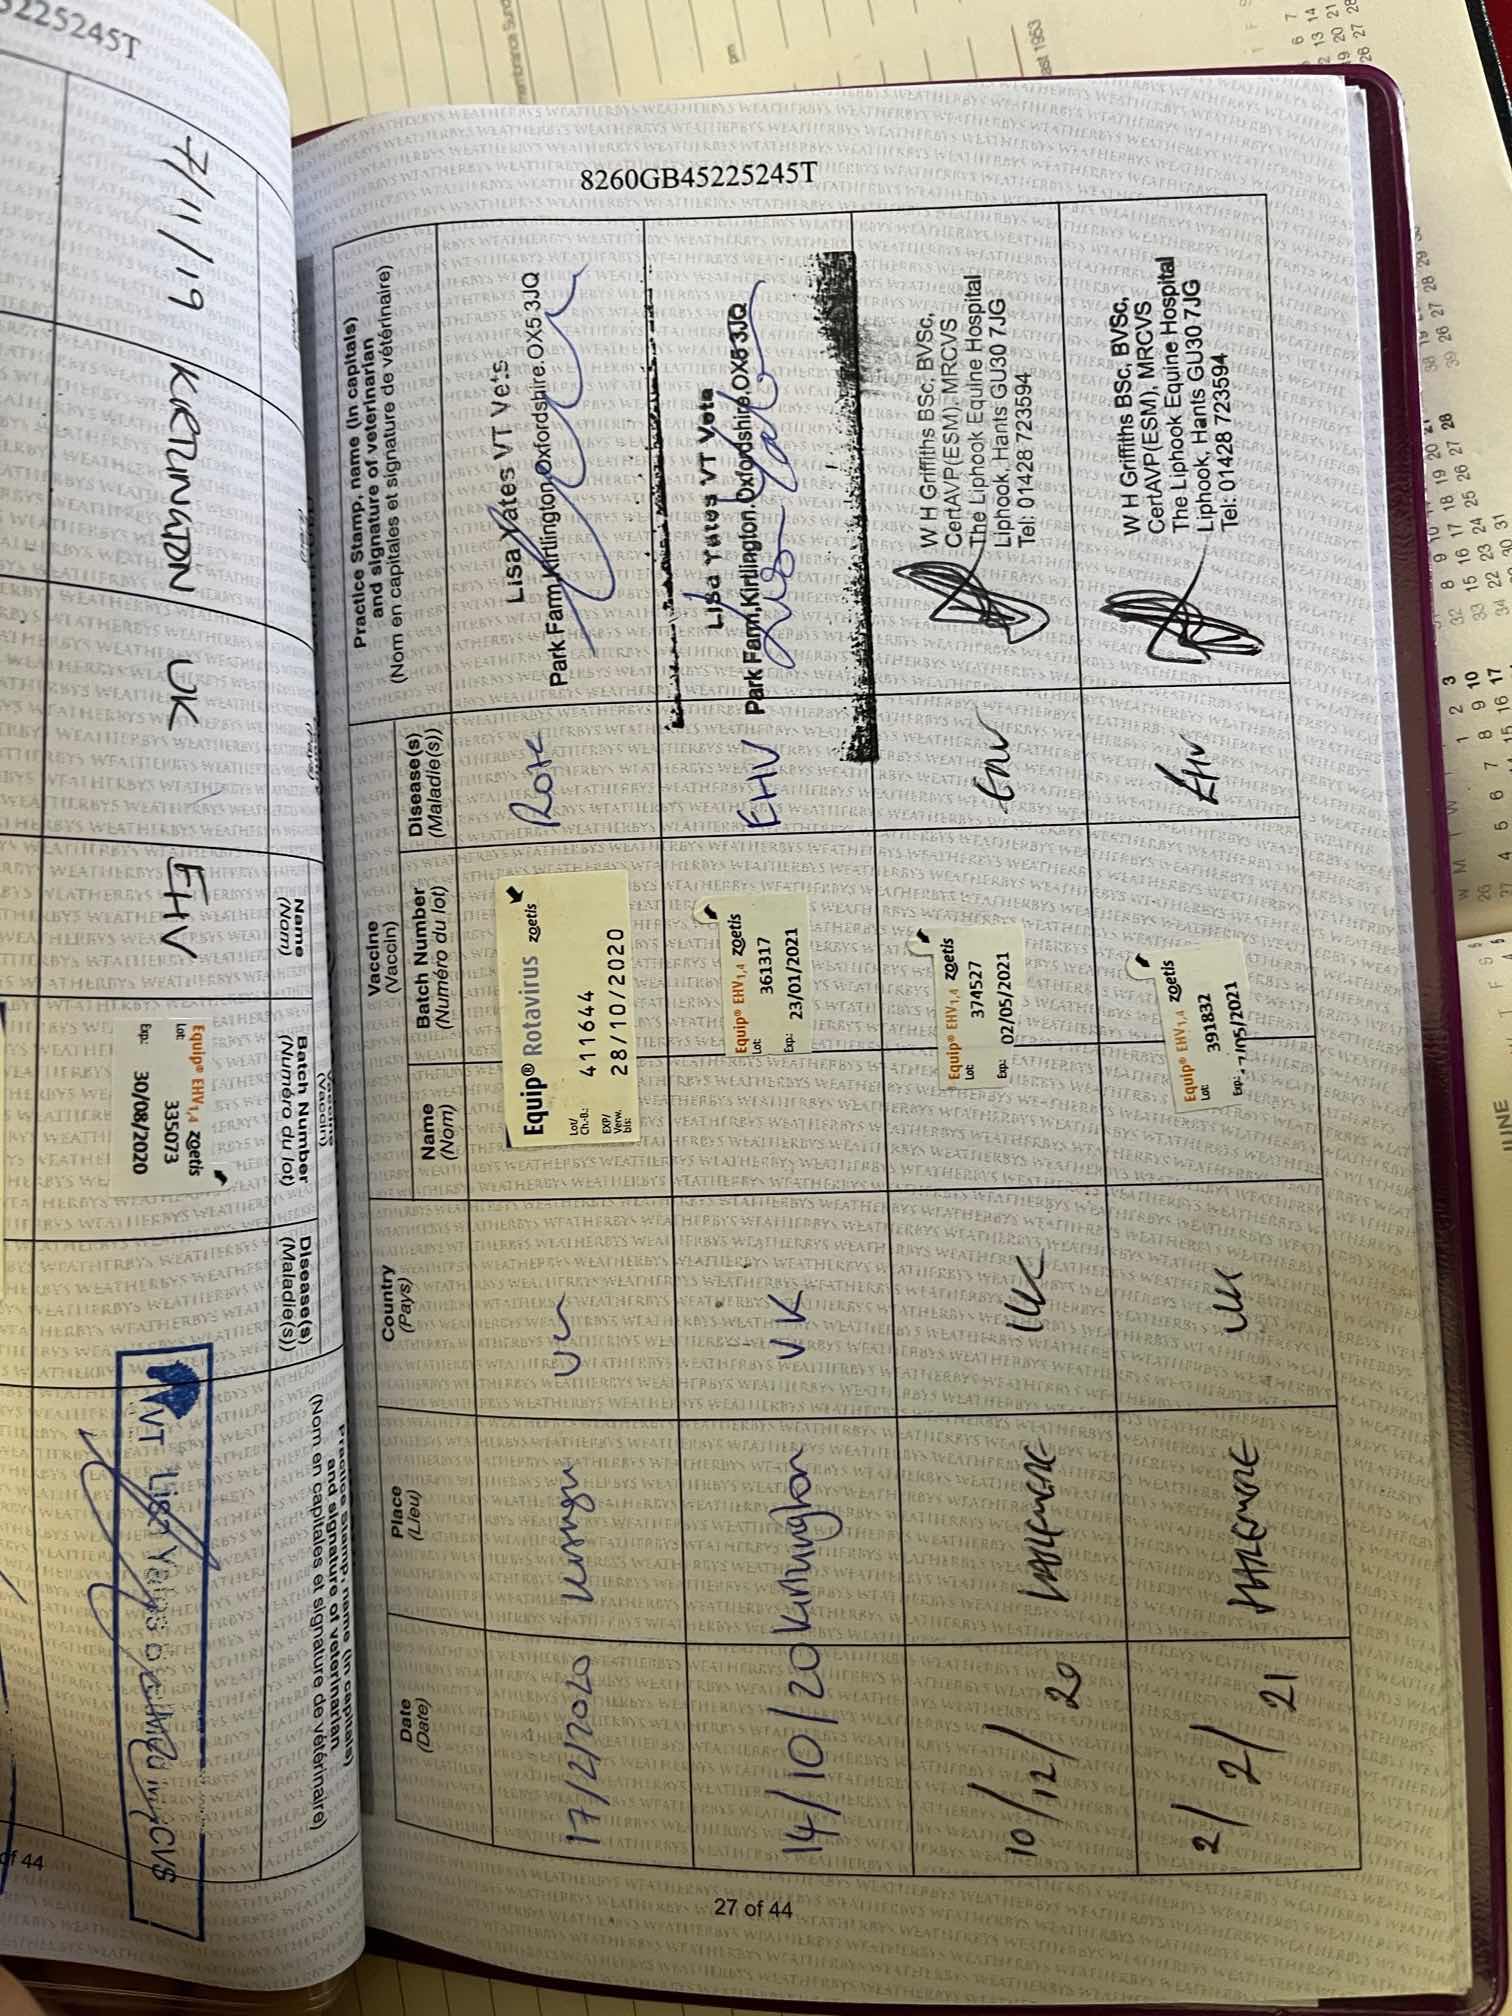 8260GB45225245T
Date
(Date)
Place
(Lieu)
Country
(Pays)
Vaccine
(Vaccin)
Name
(Nom)
Batch Number
(Numéro du lot)
Disease(s)
(Maladie(s))
Practice Stamp, name (in capitals)
and signature of veterinarian
(Nom en capitales et signature de vétérinaire)
17/2/2020
UK
Equip® Rotavirus zoetis
Lot/
Ch.-B.: 411644
EXP/
Verw.
bis: 28/10/2020
Rota
Lisa Yates VT Vets
Park Farm,Kirtlington,Oxfordshire.OX5 3JQ
14/10/20 Kirtlington UK
Equip® EHV1,4 zoetis
Lot: 361317
Exp: 23/01/2021
EHV
Lisa Yates VT Vets
Park Farm,Kirtlington,Oxfordshire.OX5 3JQ
10/12/20 HASLEMERE UK
Equip® EHV1,4 zoetis
Lot: 374527
Exp: 02/05/2021
EHV
W H Griffiths BSc, BVSc,
CertAVP(ESM), MRCVS
The Liphook Equine Hospital
Liphook, Hants GU30 7JG
Tel: 01428 723594
2/2/21 HASLEMERE UK
Equip® EHV1,4 zoetis
Lot: 391832
Exp: /05/2021
EHV
W H Griffiths BSc, BVSc,
CertAVP(ESM), MRCVS
The Liphook Equine Hospital
Liphook, Hants GU30 7JG
Tel: 01428 723594
27 of 44
5225245T
7/11/19 KIRTLINGTON UK EHV
Equip® EHV1,4 zoetis
Lot: 335073
Exp: 30/08/2020
VT Lisa Yates
Name
(Nom)
Batch Number
(Numéro du lot)
(Vaccin)
Disease(s)
(Maladie(s))
Practice Stamp, name (in capitals)
and signature of veterinarian
(Nom en capitales et signature de vétérinaire)
of 44
JUNE